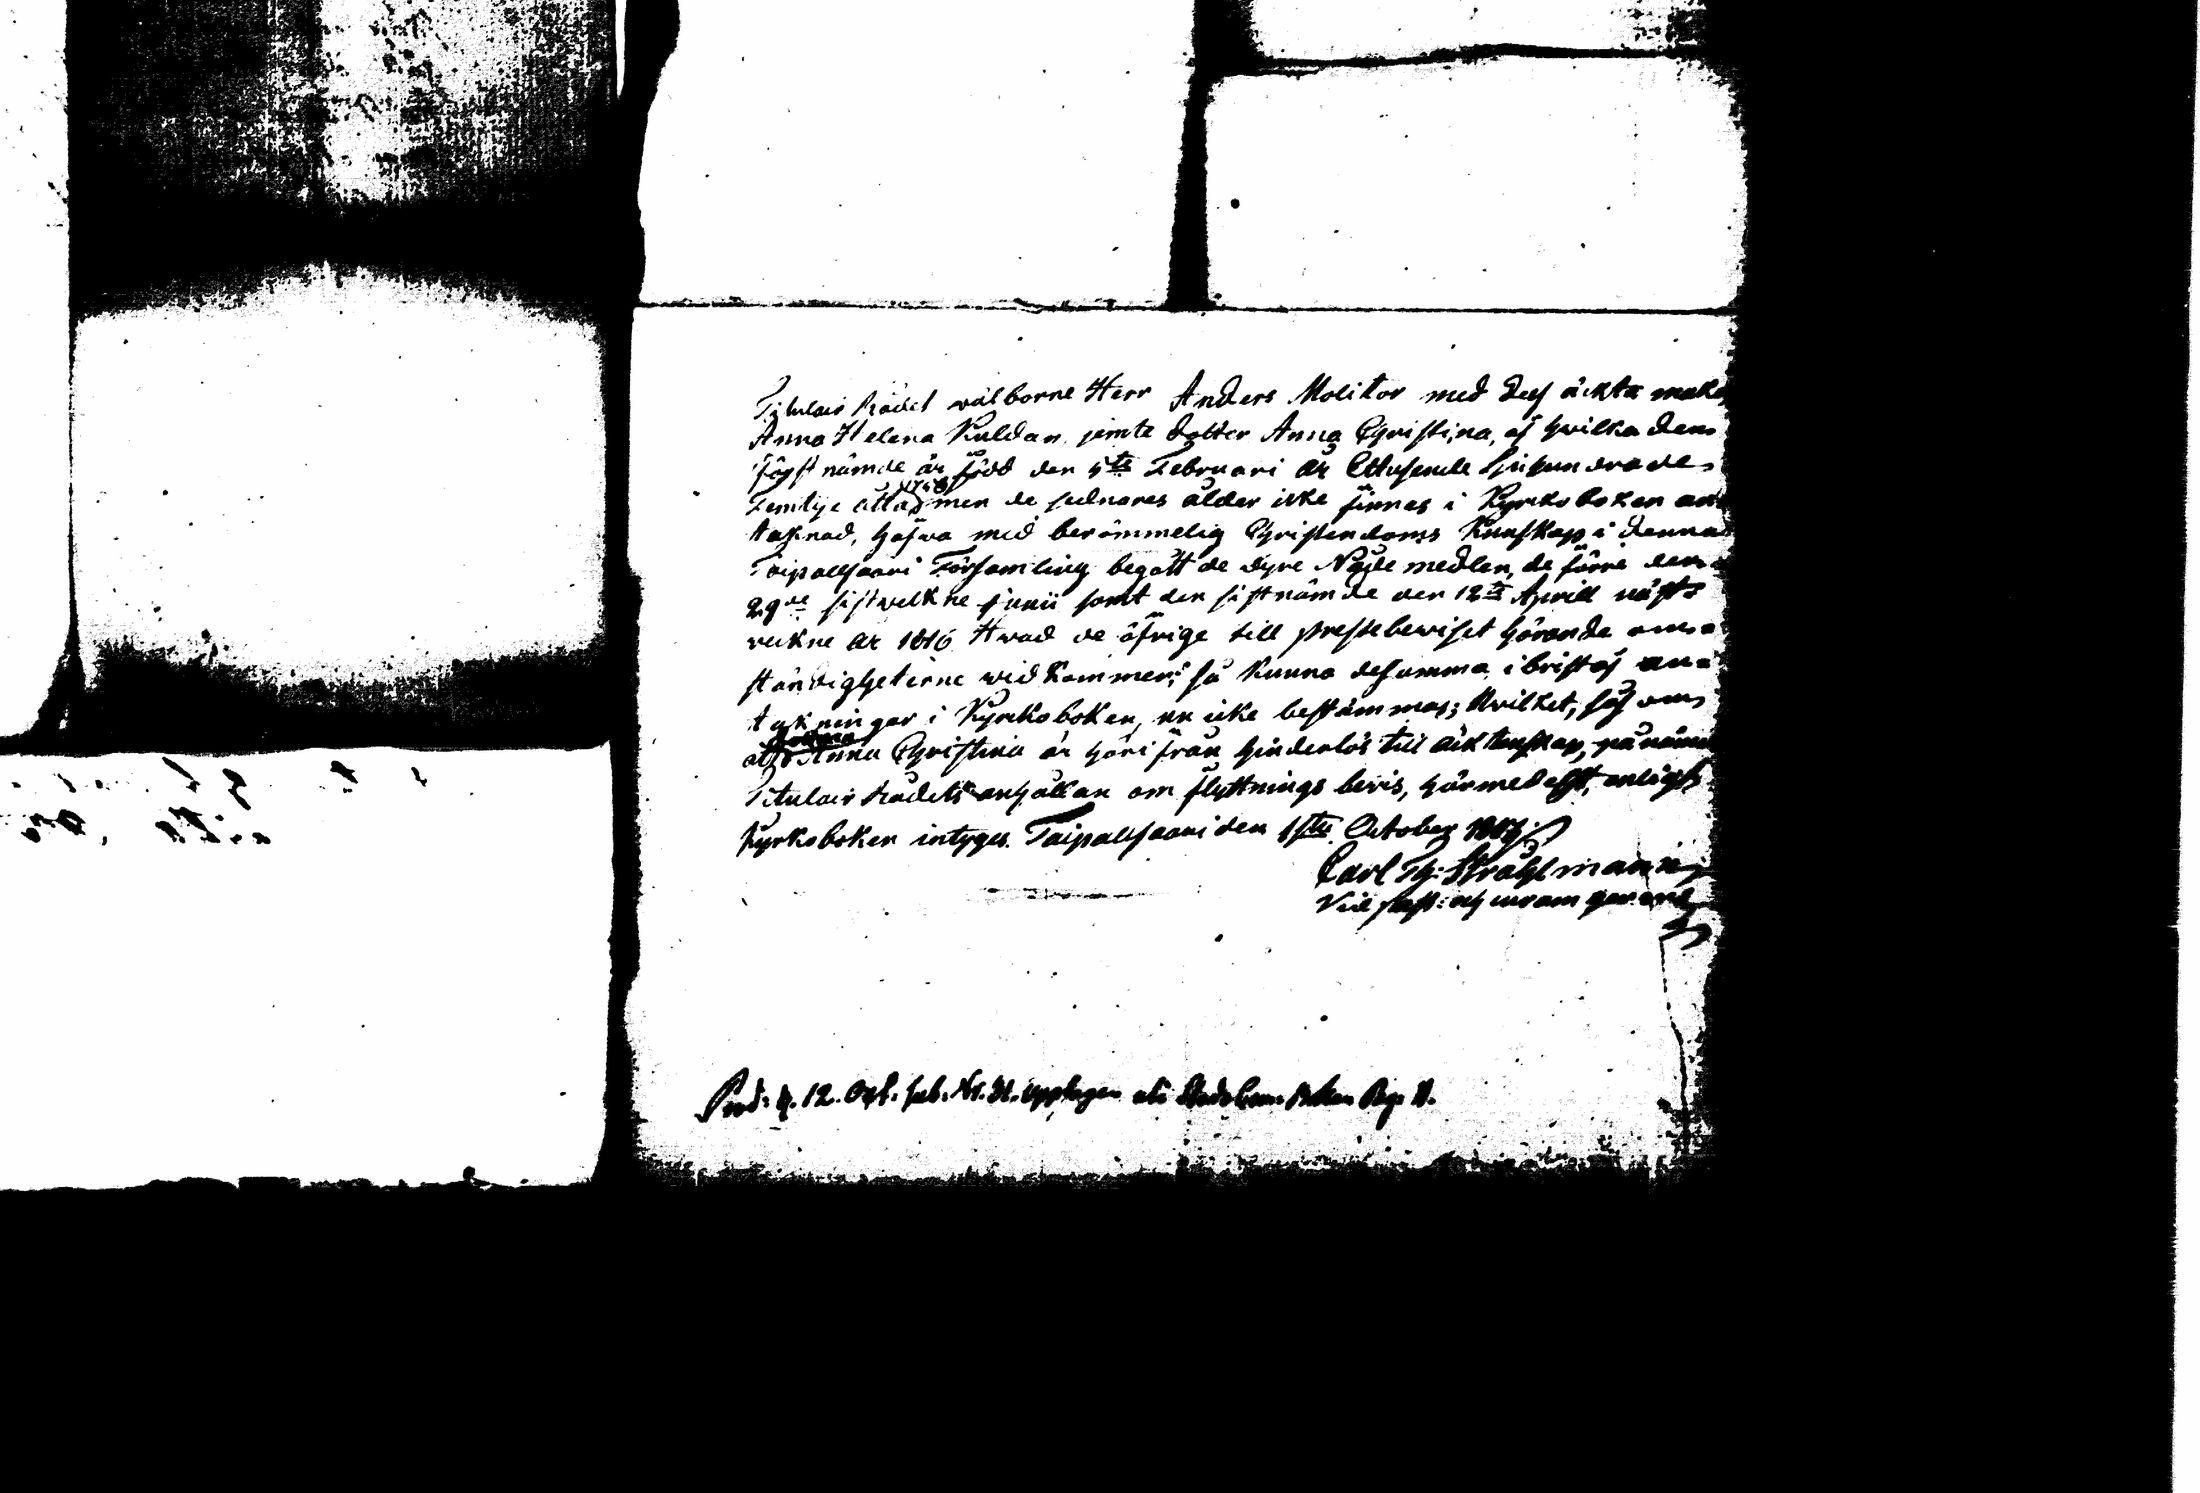 Titulair Rådet wälborne Herr Anders Molitor med dess äckta maka,
Anna Helena Kuldan, jemte dotter Anna Christina, af hwilka den
förstnämde är född den 4de Februari år Ettusende Sjuhundrade
Femtije åtta (1758) men de sednares ålder icke finnes i Kyrkoboken an-
tecknad, hafwa med berömmelig Christendoms Kunskap i denna
Taipalsaari Församling begått de dyre Nåde medlen, de förre den
29de sistwekne Junii samt den sistnämde den 12te Aprill näst-
wekne år 1816. Hwad de öfrige till prestebewiset hörande om-
ständigheterne widkommer; så kunna desamma, i brist af an-
teckningar i Kyrkoboken, nu icke bestämmas; hwilket, såsom
att Anna Christina är härifrån hinderlös till äcktenskap, på nämde
Titulair Rådets anhållan om flyttnings bevis, härmedelst, enligt
Kyrkoboken intyges. Taipalsaari den 1ste October 1817.
Carl Th: Stråhlman
Vice past: och curam gerens
Prod: d. 12. Oct. sub. No. 31. upptagen uti Stads Com. Boken Pag. 11.